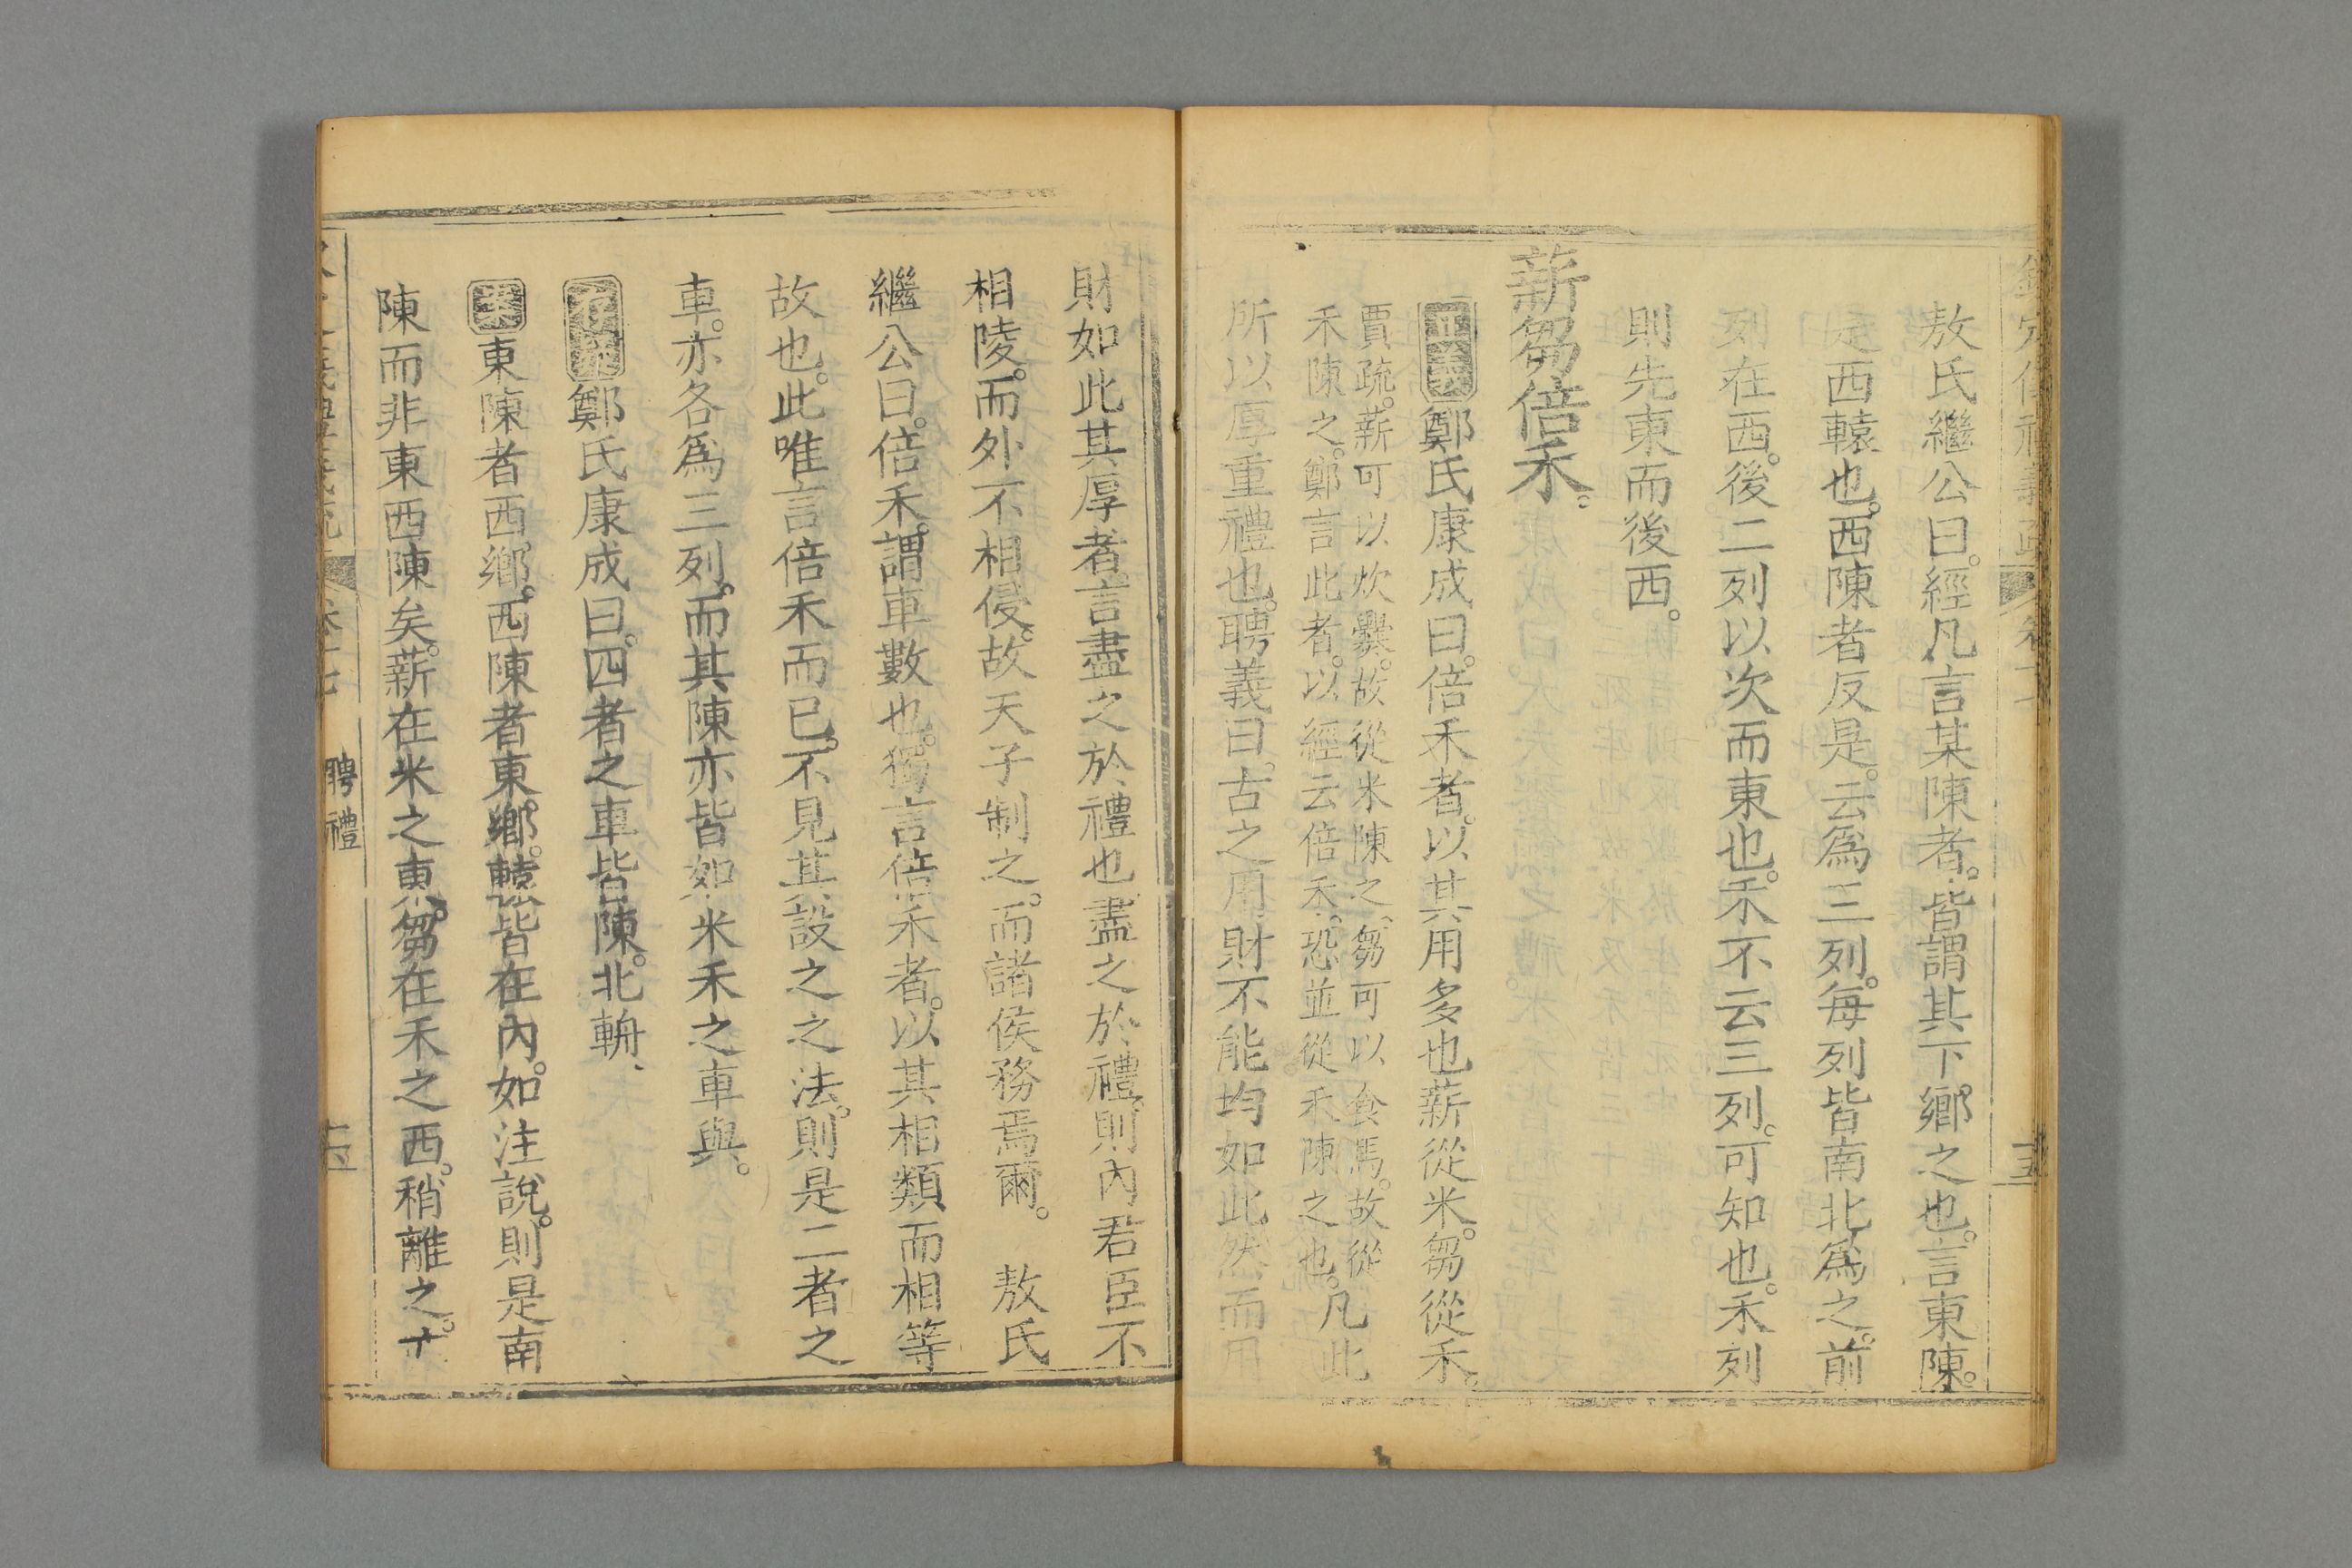 敖氏繼公曰。經凡言某陳者。皆謂其下鄉之也。言東陳。
是西轅也。西陳者反是。云爲三列。每列皆南北爲之。前
列在西。後二列以次而東也。禾不云三列。可知也。禾列
則先東而後西。
薪芻倍禾。
正義鄭氏康成曰。倍禾者。以其用多也薪從米。芻從禾。
賈疏。薪可以炊爨。故從米陳之。芻可以食馬。故從
禾陳之。鄭言此者。以經云倍禾。恐並從禾陳之也。凡此
所以厚重禮也。聘義曰。古之用財不能均如此然而用
財如此其厚者。言盡之於禮也。盡之於禮。則內君臣不
相陵。而外不相侵。故天子制之。而諸侯務焉爾。 敖氏
繼公曰。倍禾。謂車數也。獨言倍禾者。以其相類而相等
故也。此唯言倍禾而已。不見其設之之法。則是二者之
車。亦各爲三列。而其陳亦皆如米禾之車與。
存疑鄭氏康成曰。四者之車皆陳。北輈。
案東陳者西鄉。西陳者東鄉。轅皆在內。如注說。則是南
陳而非東西陳矣。薪在米之東。芻在禾之西。稍離之。十
聘禮